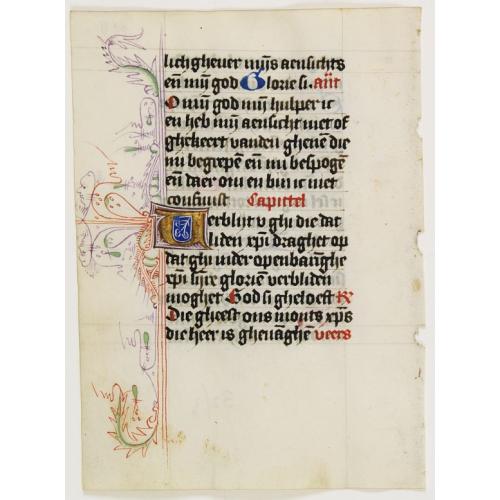 lichgheuer mijs aensichts
eñ mij god Glorie si. añt
O mij god mij hulper ic
en heb mij aensicht niet of
ghekeert vanden ghenē die
mi begrepē eñ mi bespogē
eñ daer om en bin ic niet
confuust Capittel
Verblijt v ghi die dat
liden xpi draghet op
dat ghi inder openbaringhe
xpi sijre gloriën verbliden
moghet God si gheloeft R
Die gheest ons monts xp̄s
die heer is gheuāghē veers